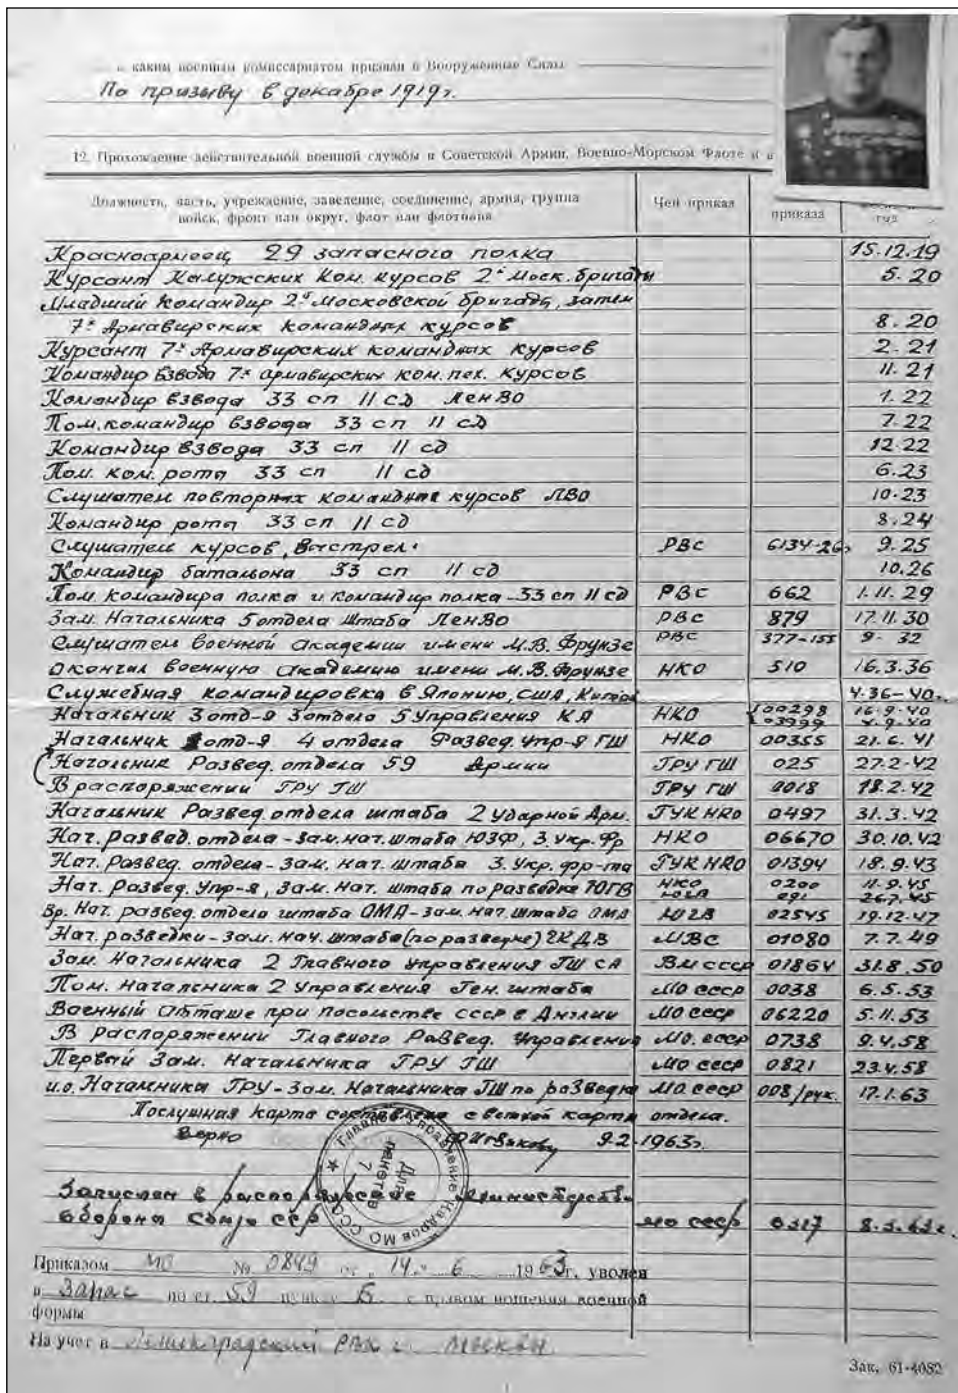 каким военным комиссариатом призван в Вооруженные Силы
По призыву в декабре 1919 г.
12. Прохождение действительной военной службы в Советской Армии, Военно-Морском Флоте и в
Должность, часть, учреждение, заведение, соединение, армия, группа войск, фронт или округ, флот или флотилия
Чей приказ
приказа
год
Красноармеец 29 запасного полка 15.12.19
Курсант Калужских Ком. курсов 2й Моск. бригады 5.20
Младший командир 2й Московской бригады, затем
7х Армавирских командных курсов 8.20
Курсант 7х Армавирских командных курсов 2.21
Командир взвода 7х армавирских ком. пех. курсов 11.21
Командир взвода 33 сп 11 сд ЛенВО 1.22
Пом. командир взвода 33 сп 11 сд 7.22
Командир взвода 33 сп 11 сд 12.22
Пом. ком. роты 33 сп 11 сд 6.23
Слушатель повторных командных курсов ЛВО 10.23
Командир роты 33 сп 11 сд 8.24
Слушатель курсов „Выстрел" РВС 6134-26г 9.25
Командир батальона 33 сп 11 сд 10.26
Пом. командира полка и командир полка - 33 сп 11 сд РВС 662 1.11.29
Зам. Начальника 5 отдела штаба ЛенВО РВС 879 17.11.30
Слушатель военной Академии имени М.В. Фрунзе РВС 377-155 9.32
Окончил военную Академию имени М.В. Фрунзе НКО 510 16.3.36
Служебная командировка в Японию, США, Китай 4.36-40г.
Начальник 3 отд-я 3 отдела 5 Управления КА НКО 100298 16.9.40
03999 4.9.40
Начальник отд-я 4 отдела Развед. Упр-я ГШ НКО 00355 21.6.41
Начальник Развед. отдела 59 Армии ГРУ ГШ 025 27.2.42
В распоряжении ГРУ ГШ ГРУ ГШ 0018 18.2.42
Начальник Развед. отдела штаба 2 Ударной Арм. ГУК НКО 0497 31.3.42
Нач. развед. отдела - зам. нач. штаба ЮЗФ, 3 Укр. Фр НКО 06670 30.10.42
Нач. Развед. отдела - зам. нач. штаба 3 Укр. фр-та ГУК НКО 01394 18.9.43
Нач. развед. Упр-я, зам. нач. штаба по разведке ЮГВ НКО 0200 11.9.45
ЮГВ 091 26.7.45
Вр. Нач. развед. отдела штаба ОМА - зам. нач. штаба ОМА ЮГВ 02545 19.12.47
Нач. разведки - зам. нач. штаба (по разведке) ГКДВ МВС 01080 7.7.49
Зам. Начальника 2 Главного Управления ГШ СА ВМ СССР 01864 31.8.50
Пом. начальника 2 Управления Ген. штаба МО СССР 0038 6.5.53
Военный Атташе при посольстве СССР в Англии МО СССР 06220 5.11.53
В распоряжении Главного Развед. Управления МО. СССР 0738 9.4.58
Первый Зам. Начальника ГРУ ГШ МО СССР 0821 23.4.58
и.о. Начальника ГРУ - зам. Начальника ГШ по разведке МО СССР 008/рук. 17.1.63
Послужная карта составлена с ветхой карты отдела.
Верно 9.2.1963г.
Главное Управление Кадров МО СССР
Для пакетов
7
Зачислен в распоряжение Министерства
обороны Союза ССР МО СССР 0317 8.3.63г.
Приказом МО № 0849 от „14" 6 1963 г. уволен
в Запас по ст. 59 пункт Б с правом ношения военной
формы
На учет в Ленинградский РВК г. Москвы
Зак. 61-4082